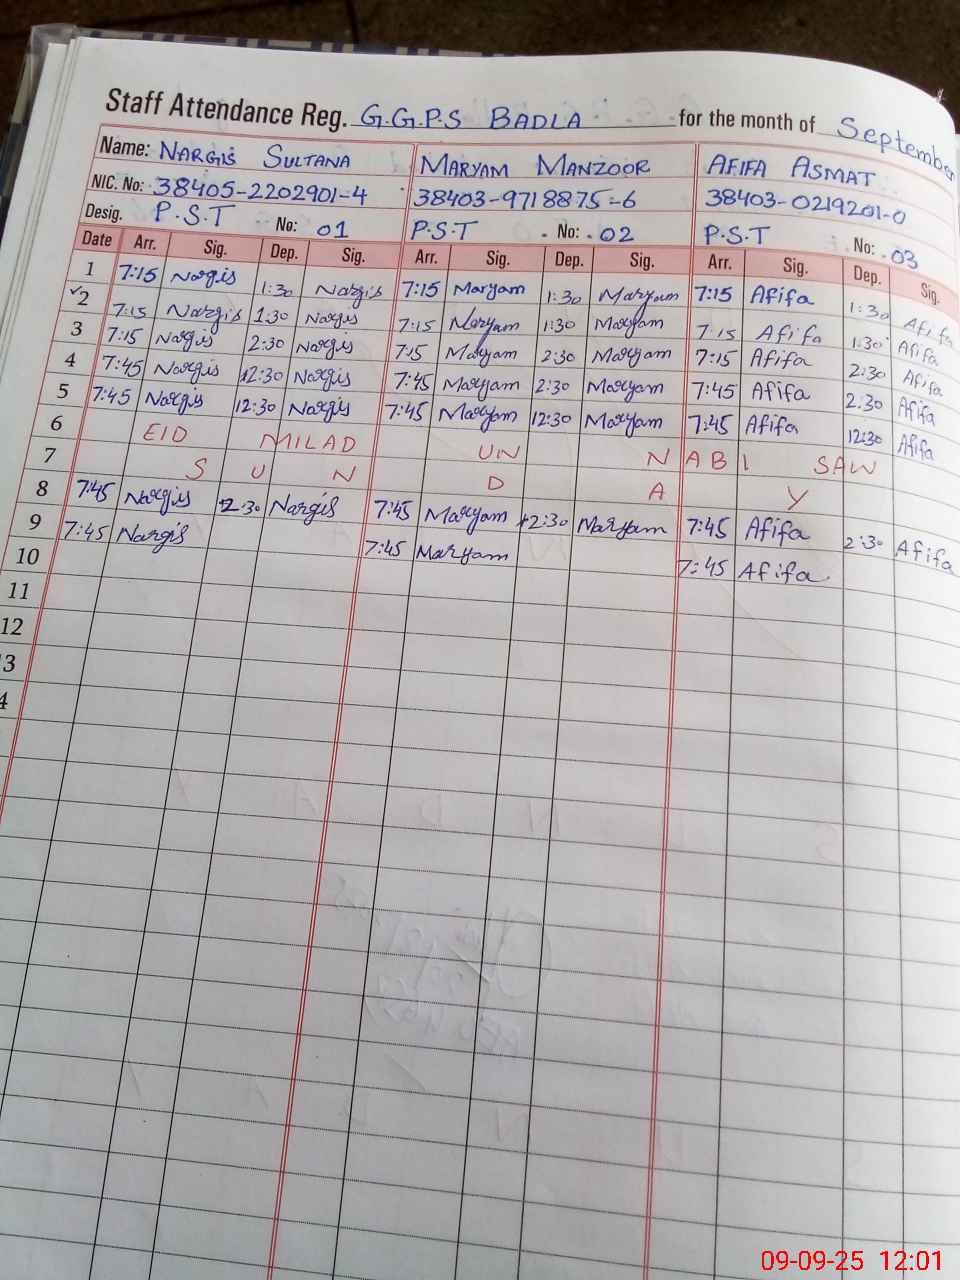 Staff Attendance Reg. G.G.P.S BADLA for the month of September
Name: NARGIS SULTANA MARYAM MANZOOR AFIFA ASMAT
NIC. No: 38405-2202901-4 38403-9718875-6 38403-0219201-0
Desig. P.S.T No: 01 P.S.T No: 02 P.S.T No: 03
Date Arr. Sig. Dep. Sig. Arr. Sig. Dep. Sig. Arr. Sig. Dep. Sig.
1 7:15 Nargis 1:30 Nargis 7:15 Maryam 1:30 Maryam 7:15 Afifa 1:30 Afifa
2 7:15 Nargis 1:30 Nargis 7:15 Maryam 1:30 Maryam 7:15 Afifa 1:30 Afifa
3 7:15 Nargis 2:30 Nargis 7:15 Maryam 2:30 Maryam 7:15 Afifa 2:30 Afifa
4 7:45 Nargis 12:30 Nargis 7:45 Maryam 2:30 Maryam 7:45 Afifa 2:30 Afifa
5 7:45 Nargis 12:30 Nargis 7:45 Maryam 12:30 Maryam 7:45 Afifa 12:30 Afifa
6 EID MILAD UN NABI SAW
7 S U N D A Y
8 7:45 Nargis 2:30 Nargis 7:45 Maryam 2:30 Maryam 7:45 Afifa 2:30 Afifa
9 7:45 Nargis 7:45 Maryam 7:45 Afifa
10
11
12
3
4
09-09-25 12:01